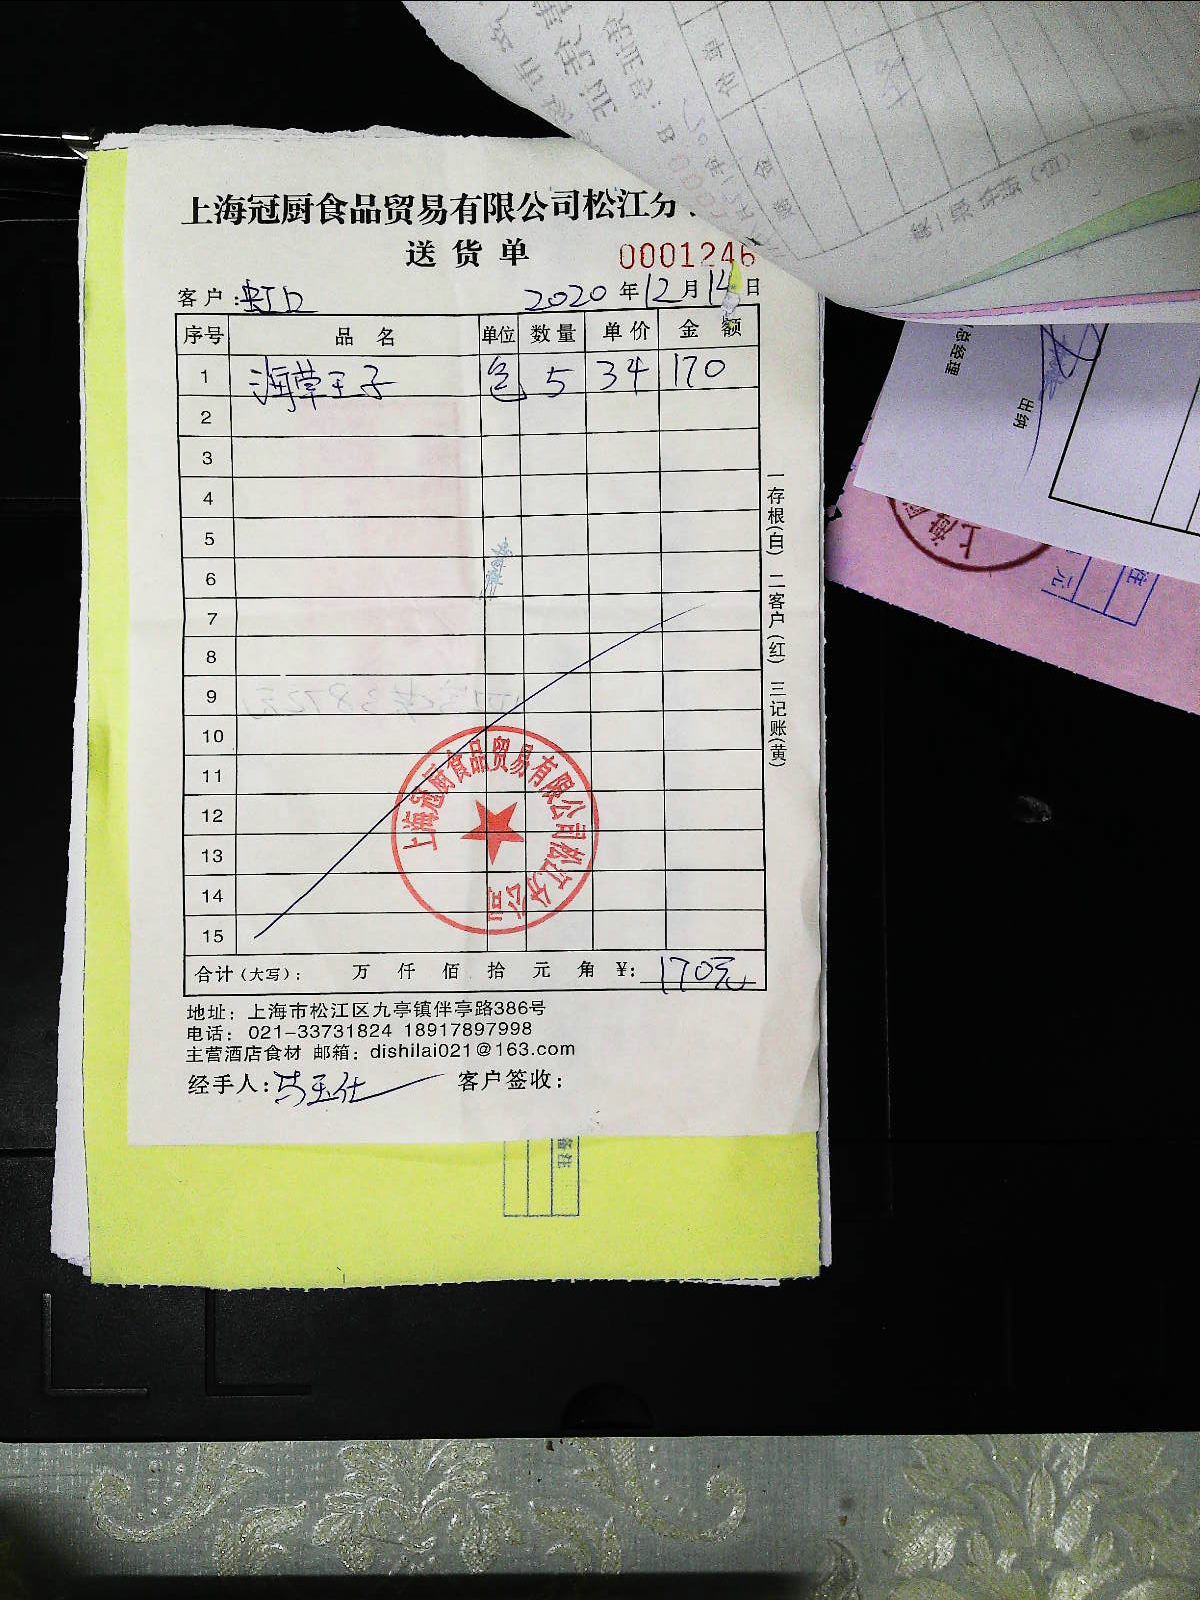 上海冠厨食品贸易有限公司松江分
送货单 0001246
客户:虹口 2020年12月14日
序号 品名 单位 数量 单价 金额
1 海草王子 包 5 34 170
2
3
4
5
6
7
8
9
10
11
12
13
14
15
合计(大写): 万 仟 佰 拾 元 角 ¥: 170元
地址: 上海市松江区九亭镇伴亭路386号
电话: 021-33731824 18917897998
主营酒店食材 邮箱: dishilai021@163.com
经手人: 客户签收:
一存根(白) 二客户(红) 三记账(黄)
上海冠厨食品贸易有限公司松江分公司
备注
总经理
出纳
上海
元
注